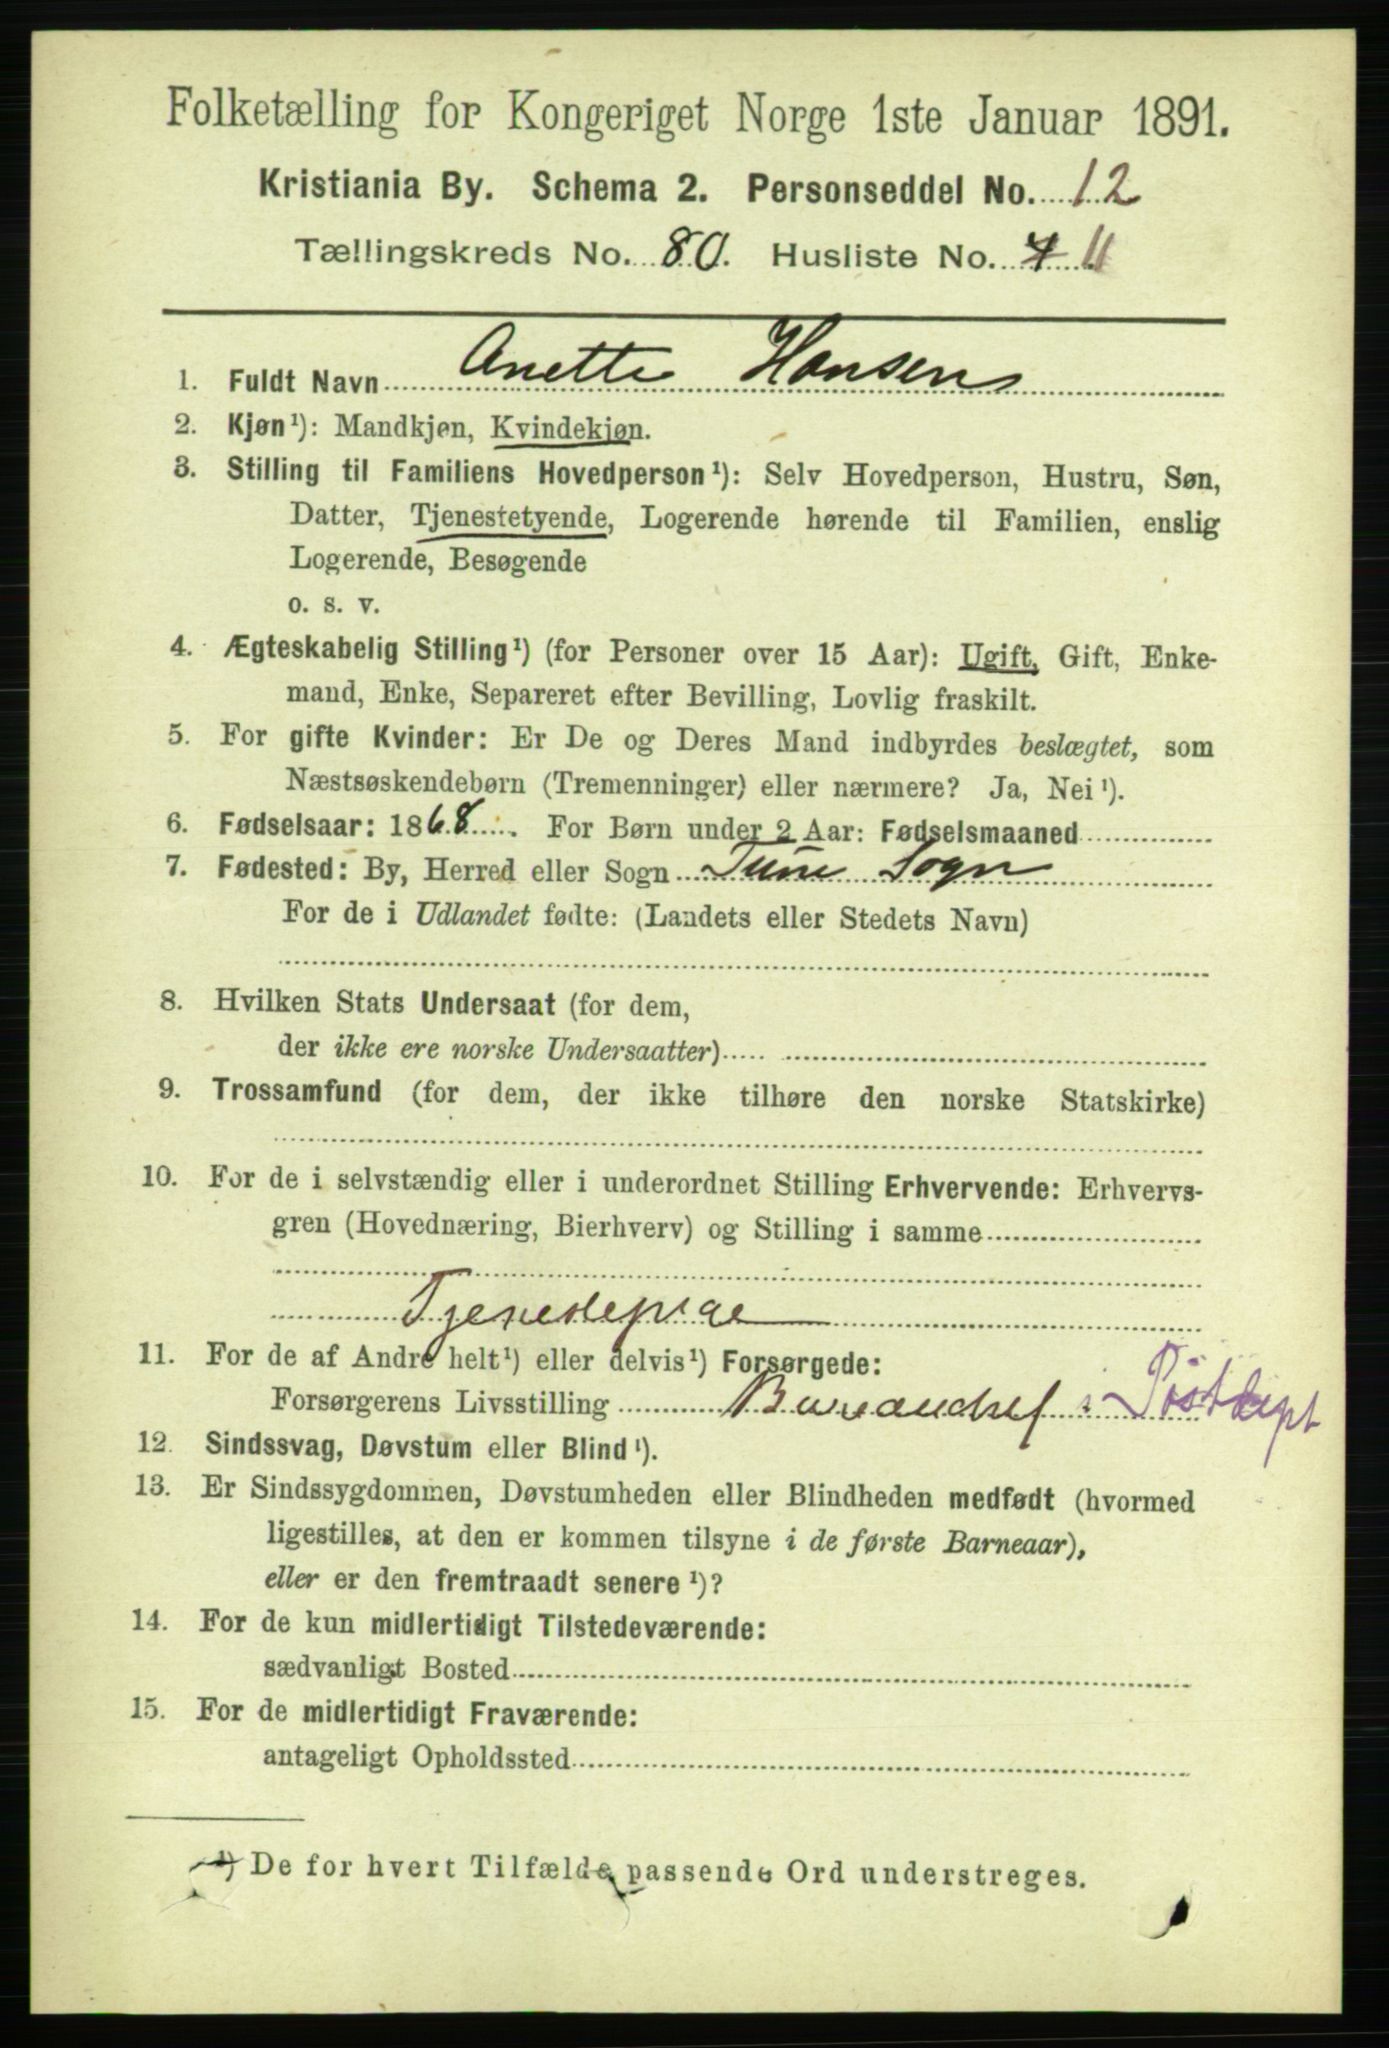 Folketælling for Kongeriget Norge 1ste Januar 1891.
Kristiania By. Schema 2. Personseddel No. 12
Tællingskreds No. 80. Husliste No. 7 11
1. Fuldt Navn Anette Hansen
2. Kjøn¹): Mandkjøn, Kvindekjøn.
3. Stilling til Familiens Hovedperson¹): Selv Hovedperson, Hustru, Søn,
Datter, Tjenestetyende, Logerende hørende til Familien, enslig
Logerende, Besøgende
o. s. v.
4. Ægteskabelig Stilling¹) (for Personer over 15 Aar): Ugift, Gift, Enke-
mand, Enke, Separeret efter Bevilling, Lovlig fraskilt.
5. For gifte Kvinder: Er De og Deres Mand indbyrdes beslægtet, som
Næstsøskendebørn (Tremenninger) eller nærmere? Ja, Nei¹).
6. Fødselsaar: 1868. For Børn under 2 Aar: Fødselsmaaned
7. Fødested: By, Herred eller Sogn Tune Sogn
For de i Udlandet fødte: (Landets eller Stedets Navn)
8. Hvilken Stats Undersaat (for dem,
der ikke ere norske Undersaatter)
9. Trossamfund (for dem, der ikke tilhøre den norske Statskirke)
10. For de i selvstændig eller i underordnet Stilling Erhvervende: Erhvervs-
gren (Hovednæring, Bierhverv) og Stilling i samme
Tjenestepige
11. For de af Andre helt¹) eller delvis¹) Forsørgede:
Forsørgerens Livsstilling Bureauchef i Postdept
12. Sindssvag, Døvstum eller Blind¹).
13. Er Sindssygdommen, Døvstumheden eller Blindheden medfødt (hvormed
ligestilles, at den er kommen tilsyne i de første Barneaar),
eller er den fremtraadt senere¹)?
14. For de kun midlertidigt Tilstedeværende:
sædvanligt Bosted
15. For de midlertidigt Fraværende:
antageligt Opholdssted
¹) De for hvert Tilfælde passende Ord understreges.